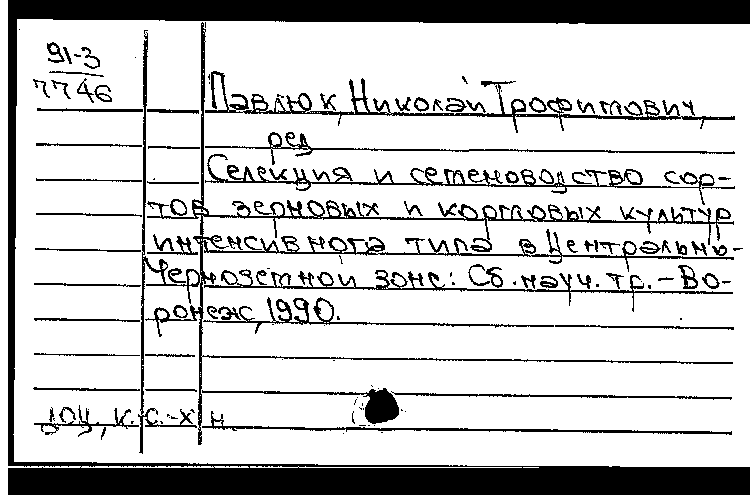 91-3
7746
Павлюк, Николай Трофимович,
ред
Селекция и семеноводство сор-
тов зерновых и кормовых культур
интенсивного типа в Центрально-
Черноземной зоне: Сб. науч. тр. - Во-
ронеж, 1990.
доц, к. с.-х н.